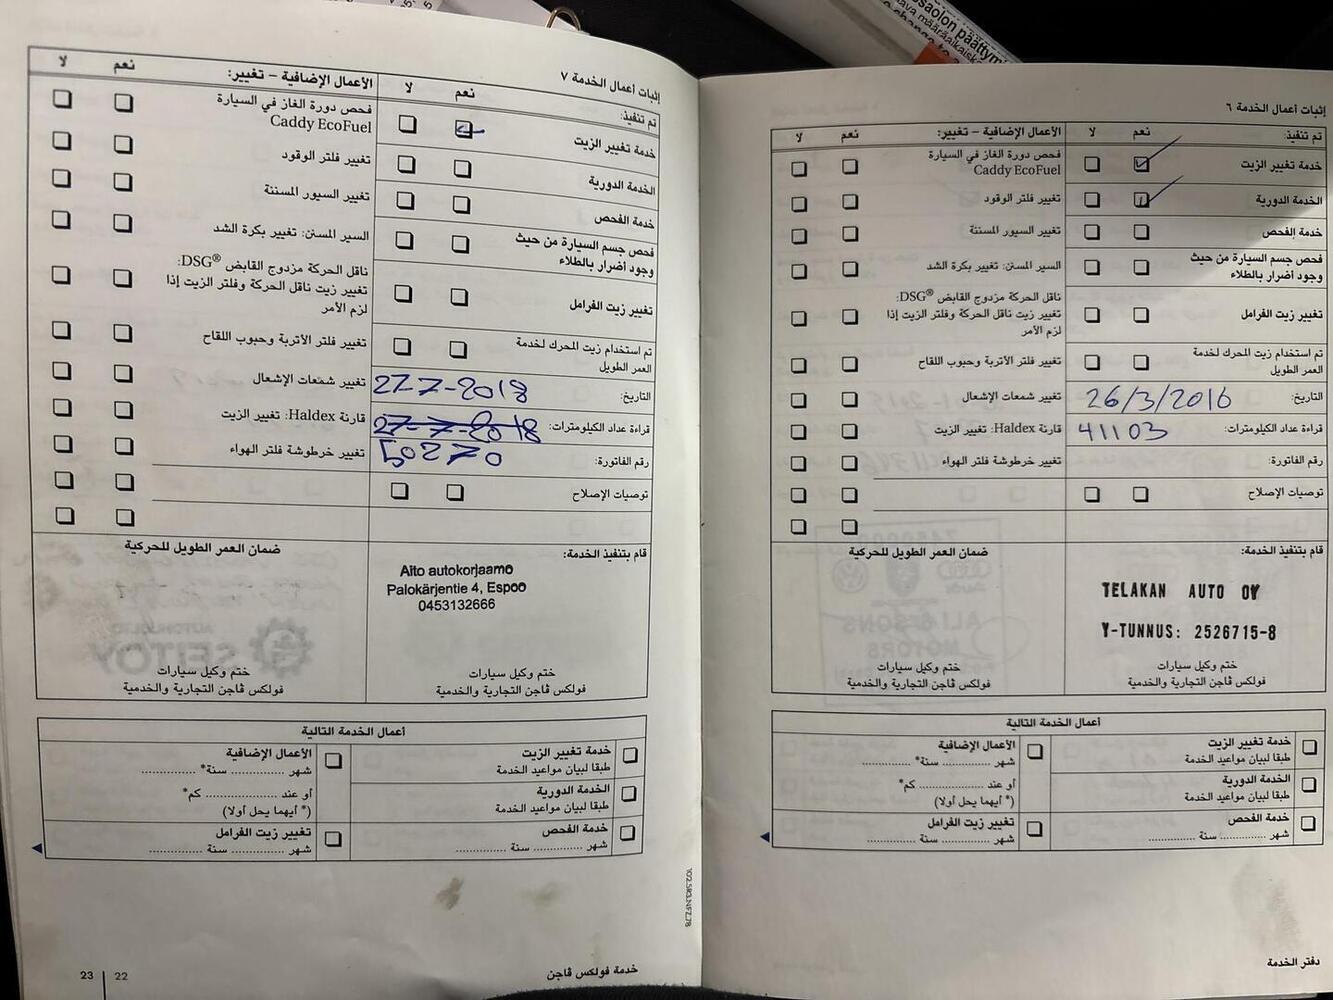 إثبات أعمال الخدمة ٦
تم تنفيذ:
نعم
لا
الأعمال الإضافية – تغيير:
نعم
لا
خدمة تغيير الزيت
الخدمة الدورية
خدمة الفحص
فحص جسم السيارة من حيث
وجود أضرار بالطلاء
تغيير زيت الفرامل
تم استخدام زيت المحرك لخدمة
العمر الطويل
التاريخ:
26/3/2016
قراءة عداد الكيلومترات:
41103
رقم الفاتورة:
توصيات الإصلاح
فحص دورة الغاز في السيارة
Caddy EcoFuel
تغيير فلتر الوقود
تغيير السيور المسننة
السير المسنن: تغيير بكرة الشد
ناقل الحركة مزدوج القابض DSG®:
تغيير زيت ناقل الحركة وفلتر الزيت إذا
لزم الأمر
تغيير فلتر الأتربة وحبوب اللقاح
تغيير شمعات الإشعال
قارنة Haldex: تغيير الزيت
تغيير خرطوشة فلتر الهواء
قام بتنفيذ الخدمة:
TELAKAN AUTO OY
Y-TUNNUS: 2526715-8
ختم وكيل سيارات
فولكس ڤاجن التجارية والخدمية
ضمان العمر الطويل للحركية
ختم وكيل سيارات
فولكس ڤاجن التجارية والخدمية
أعمال الخدمة التالية
خدمة تغيير الزيت
طبقا لبيان مواعيد الخدمة
الخدمة الدورية
طبقا لبيان مواعيد الخدمة
خدمة الفحص
شهر .............. سنة ..............
الأعمال الإضافية
شهر .............. سنة* ..............
أو عند .................. كم*
(* أيهما يحل أولا)
تغيير زيت الفرامل
شهر .............. سنة ..............
دفتر الخدمة
إثبات أعمال الخدمة ٧
تم تنفيذ:
نعم
لا
الأعمال الإضافية – تغيير:
نعم
لا
خدمة تغيير الزيت
الخدمة الدورية
خدمة الفحص
فحص جسم السيارة من حيث
وجود أضرار بالطلاء
تغيير زيت الفرامل
تم استخدام زيت المحرك لخدمة
العمر الطويل
التاريخ:
27-7-2018
قراءة عداد الكيلومترات:
27-7-2018
رقم الفاتورة:
50270
توصيات الإصلاح
فحص دورة الغاز في السيارة
Caddy EcoFuel
تغيير فلتر الوقود
تغيير السيور المسننة
السير المسنن: تغيير بكرة الشد
ناقل الحركة مزدوج القابض DSG®:
تغيير زيت ناقل الحركة وفلتر الزيت إذا
لزم الأمر
تغيير فلتر الأتربة وحبوب اللقاح
تغيير شمعات الإشعال
قارنة Haldex: تغيير الزيت
تغيير خرطوشة فلتر الهواء
قام بتنفيذ الخدمة:
Aito autokorjaamo
Palokärjentie 4, Espoo
0453132666
ختم وكيل سيارات
فولكس ڤاجن التجارية والخدمية
ضمان العمر الطويل للحركية
ختم وكيل سيارات
فولكس ڤاجن التجارية والخدمية
أعمال الخدمة التالية
خدمة تغيير الزيت
طبقا لبيان مواعيد الخدمة
الخدمة الدورية
طبقا لبيان مواعيد الخدمة
خدمة الفحص
شهر .............. سنة ..............
الأعمال الإضافية
شهر .............. سنة* ..............
أو عند .................. كم*
(* أيهما يحل أولا)
تغيير زيت الفرامل
شهر .............. سنة ..............
خدمة فولكس ڤاجن
22
23